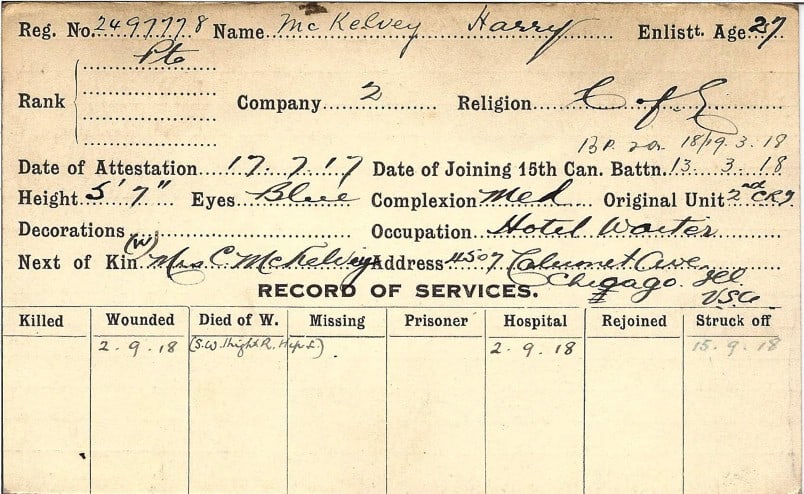 Reg. No. 2497778 Name McKelvey Harry Enlistt. Age 27
Pte
Rank Company 2 Religion C of E
18/19.3.18
Date of Attestation 17.7.17 Date of Joining 15th Can. Battn. 13.3.18
Height 5' 7" Eyes Blue Complexion Med Original Unit 2nd CRT
Decorations Occupation Hotel Waiter
Next of Kin (W) Mrs C McKelvey Address 4507 Calumet Ave
Chicago. Ill
USA
RECORD OF SERVICES.
Killed Wounded Died of W. Missing Prisoner Hospital Rejoined Struck off
2.9.18 (S.W. thigh R. Hip L.) 2.9.18 15.9.18